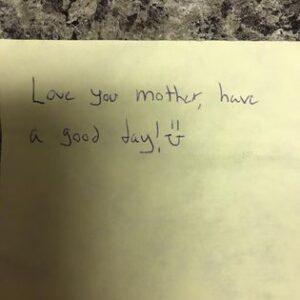 Love you mother, have
a good day! :)